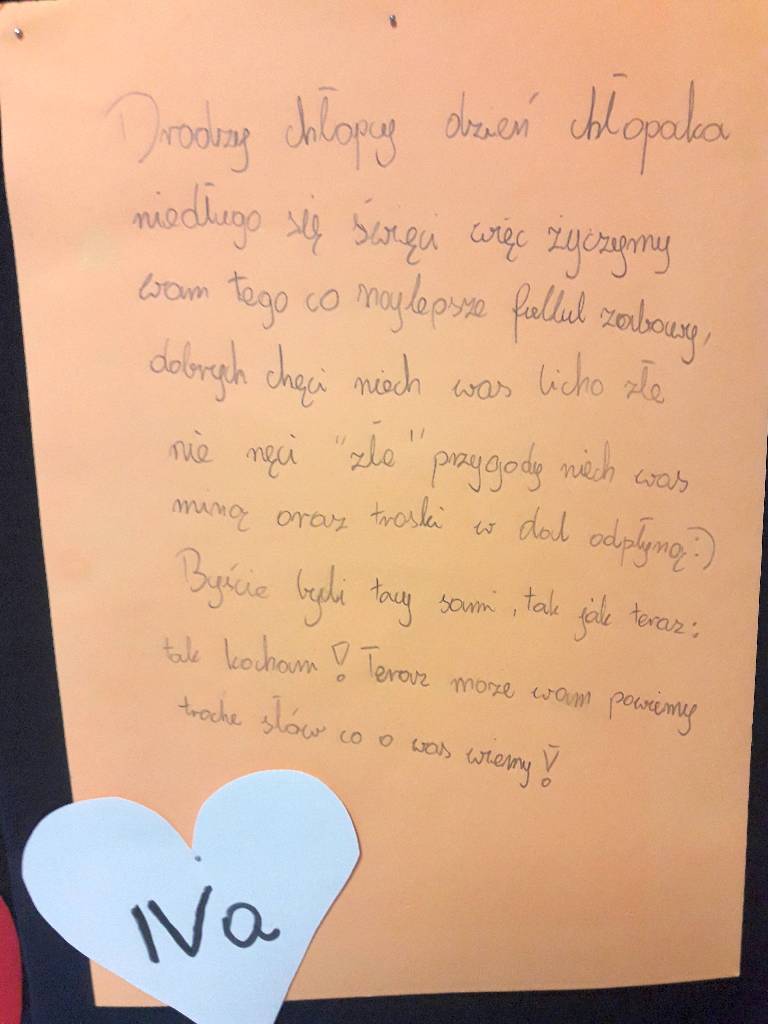 Drodzy chłopcy dzień chłopaka
niedługo się święci więc życzymy
wam tego co najlepsze fullul zabawy,
dobrych chęci niech was licho złe
nie nęci "złe" przygody niech was
miną oraz troski w dal odpłyną:)
Byście byli tacy sami, tak jak teraz:
tak kocham! Teraz może wam powiemy
troche słów co o was wiemy!
IVa